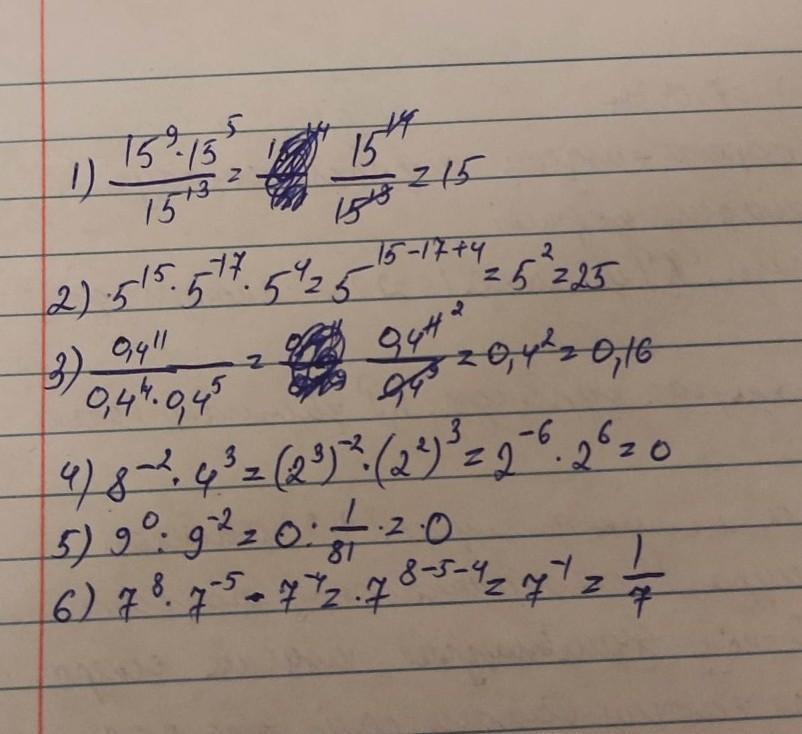 1) 15⁹·15⁵ / 15¹³ = 15¹⁴ / 15¹³ = 15
2) 5¹⁵ · 5⁻¹⁷ · 5⁴ = 5¹⁵⁻¹⁷⁺⁴ = 5² = 25
3) 0,4¹¹ / 0,4⁴·0,4⁵ = 0,4¹¹ ² / 0,4⁹ = 0,4² = 0,16
4) 8⁻² · 4³ = (2³)⁻² · (2²)³ = 2⁻⁶ · 2⁶ = 0
5) 9⁰ : 9⁻² = 0 : 1/81 = 0
6) 7⁸ · 7⁻⁵ · 7⁻⁴ = 7⁸⁻⁵⁻⁴ = 7⁻¹ = 1/7